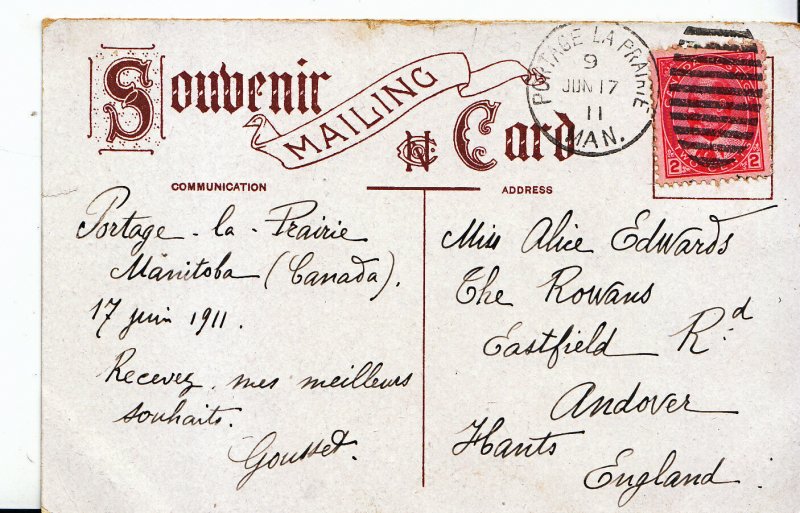 Souvenir
MAILING
Card
PORTAGE LA PRAIRIE
9
JUN 17
11
MAN.
2 2
COMMUNICATION
ADDRESS
Portage - la - Prairie
Manitoba (Canada).
17 juin 1911.
Recevez mes meilleurs
souhaits.
Gousset.
Miss Alice Edwards
The Rowans
Eastfield Rd
Andover
Hants
England.